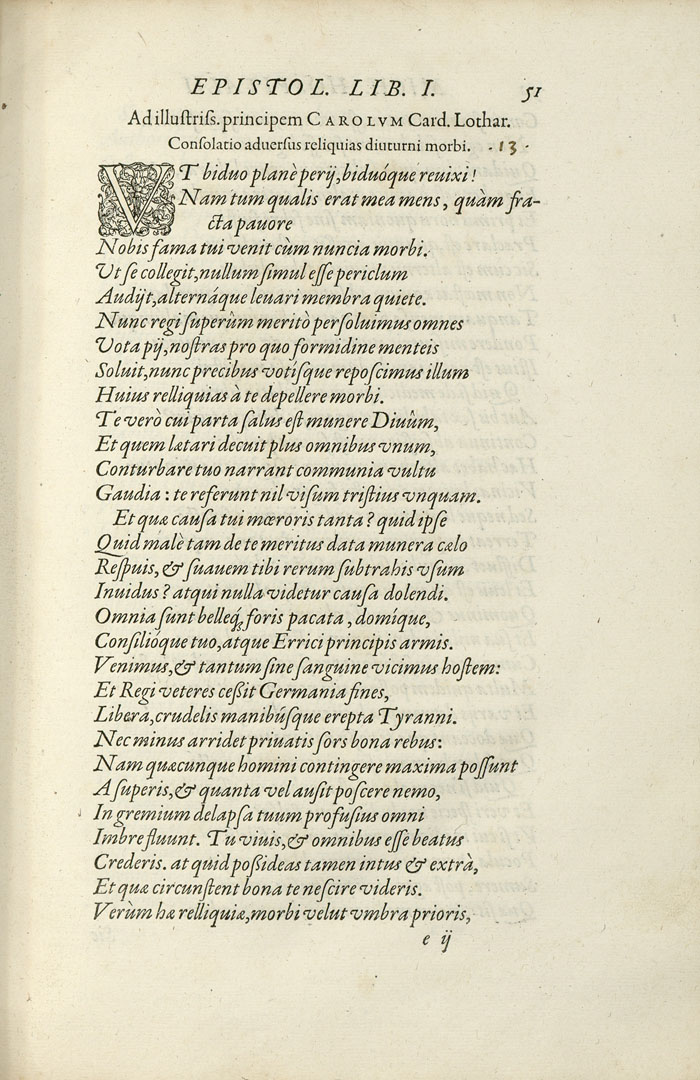 EPISTOL. LIB. I. 51
Ad illustriss. principem CAROLVM Card. Lothar.
Consolatio aduersus reliquias diuturni morbi. ·13·
VT biduo planè perij, biduóque reuixi!
Nam tum qualis erat mea mens, quàm fra-
cta pauore
Nobis fama tui venit cùm nuncia morbi.
Vt se collegit, nullum simul esse periclum
Audijt, alternáque leuari membra quiete.
Nunc regi superûm meritò persoluimus omnes
Vota pij, nostras pro quo formidine menteis
Soluit, nunc precibus votísque reposcimus illum
Huius relliquias à te depellere morbi.
Te verò cui parta salus est munere Diuûm,
Et quem lætari decuit plus omnibus vnum,
Conturbare tuo narrant communia vultu
Gaudia: te referunt nil visum tristius vnquam.
Et quæ causa tui mœroris tanta? quid ipse
Quid malè tam de te meritus data munera cælo
Respuis, & suauem tibi rerum subtrahis vsum
Inuidus? atqui nulla videtur causa dolendi.
Omnia sunt belleq́; foris pacata, domíque,
Consilióque tuo, atque Errici principis armis.
Venimus, & tantum sine sanguine vicimus hostem:
Et Regi veteres cessit Germania fines,
Libera, crudelis manibúsque erepta Tyranni.
Nec minus arridet priuatis sors bona rebus:
Nam quæcunque homini contingere maxima possunt
A superis, & quanta vel ausit poscere nemo,
In gremium delapsa tuum profusius omni
Imbre fluunt. Tu viuis, & omnibus esse beatus
Crederis. at quid possideas tamen intus & extrà,
Et quæ circunstent bona te nescire videris.
Verùm hæ relliquiæ, morbi velut vmbra prioris,
e ij